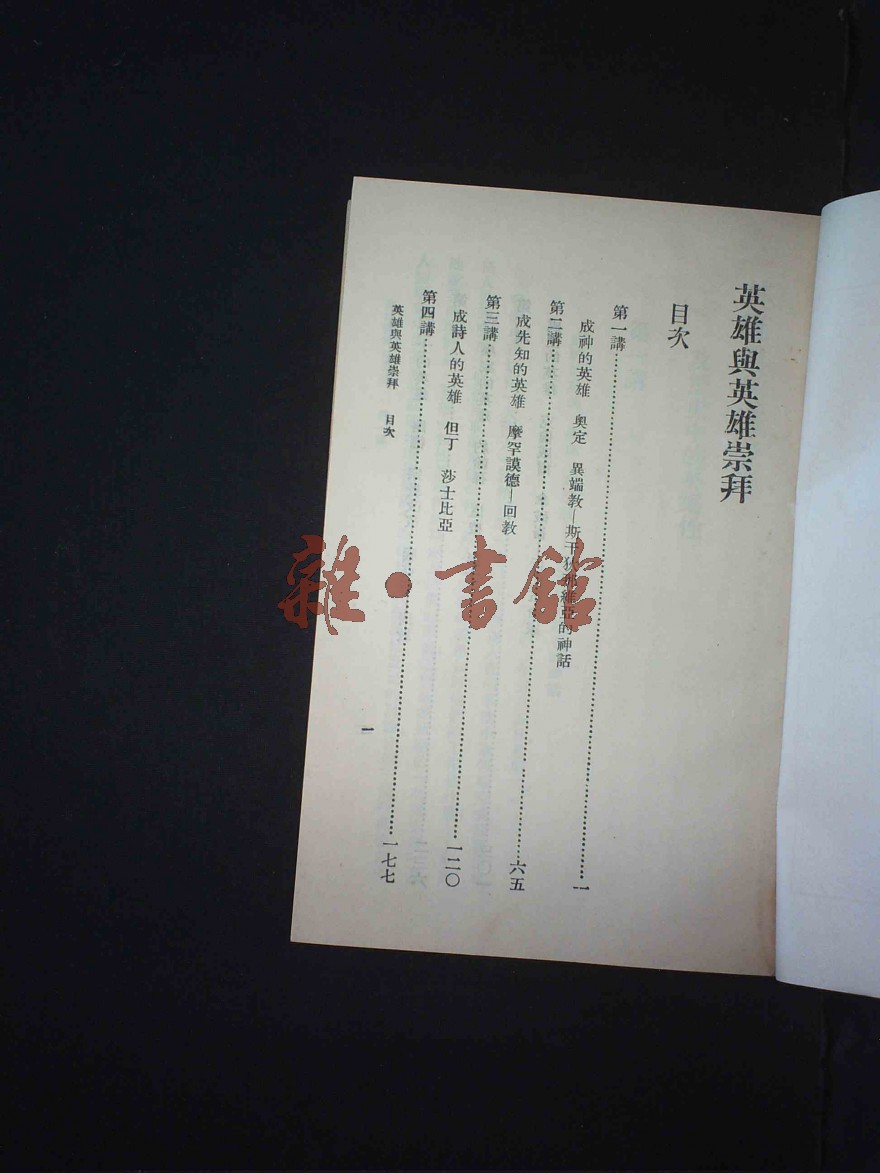 英雄與英雄崇拜
目次
第一講…………一
成神的英雄　奧定　異端教—斯干狄那維亞的神話
第二講…………六五
成先知的英雄　摩罕謨德—回教
第三講…………一二〇
成詩人的英雄　但丁　莎士比亞
第四講…………一七七
英雄與英雄崇拜　目次
一
雜·書館